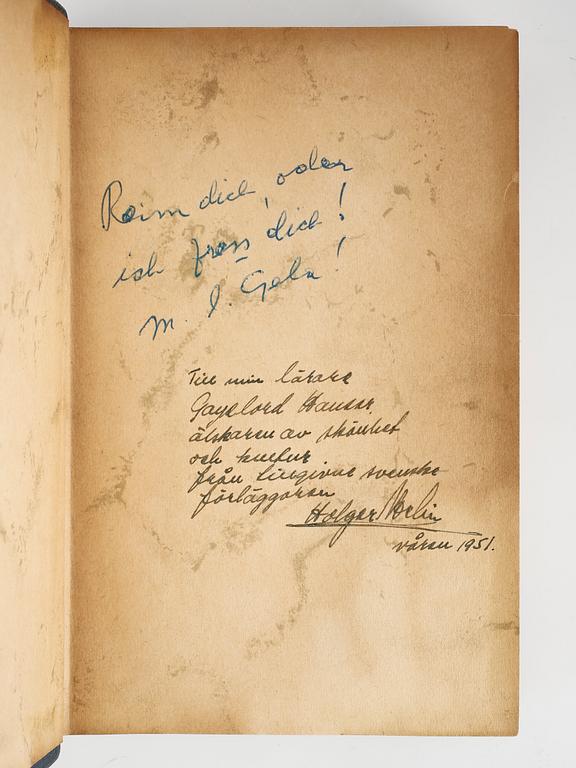 Reim dich, oder
ich fress dich!
M. l. Gela!
Till min lärare
Gayelord Hauser
älskaren av skönhet
och kultur
från tillgivne svenske
förläggaren
Holger
våren 1951.